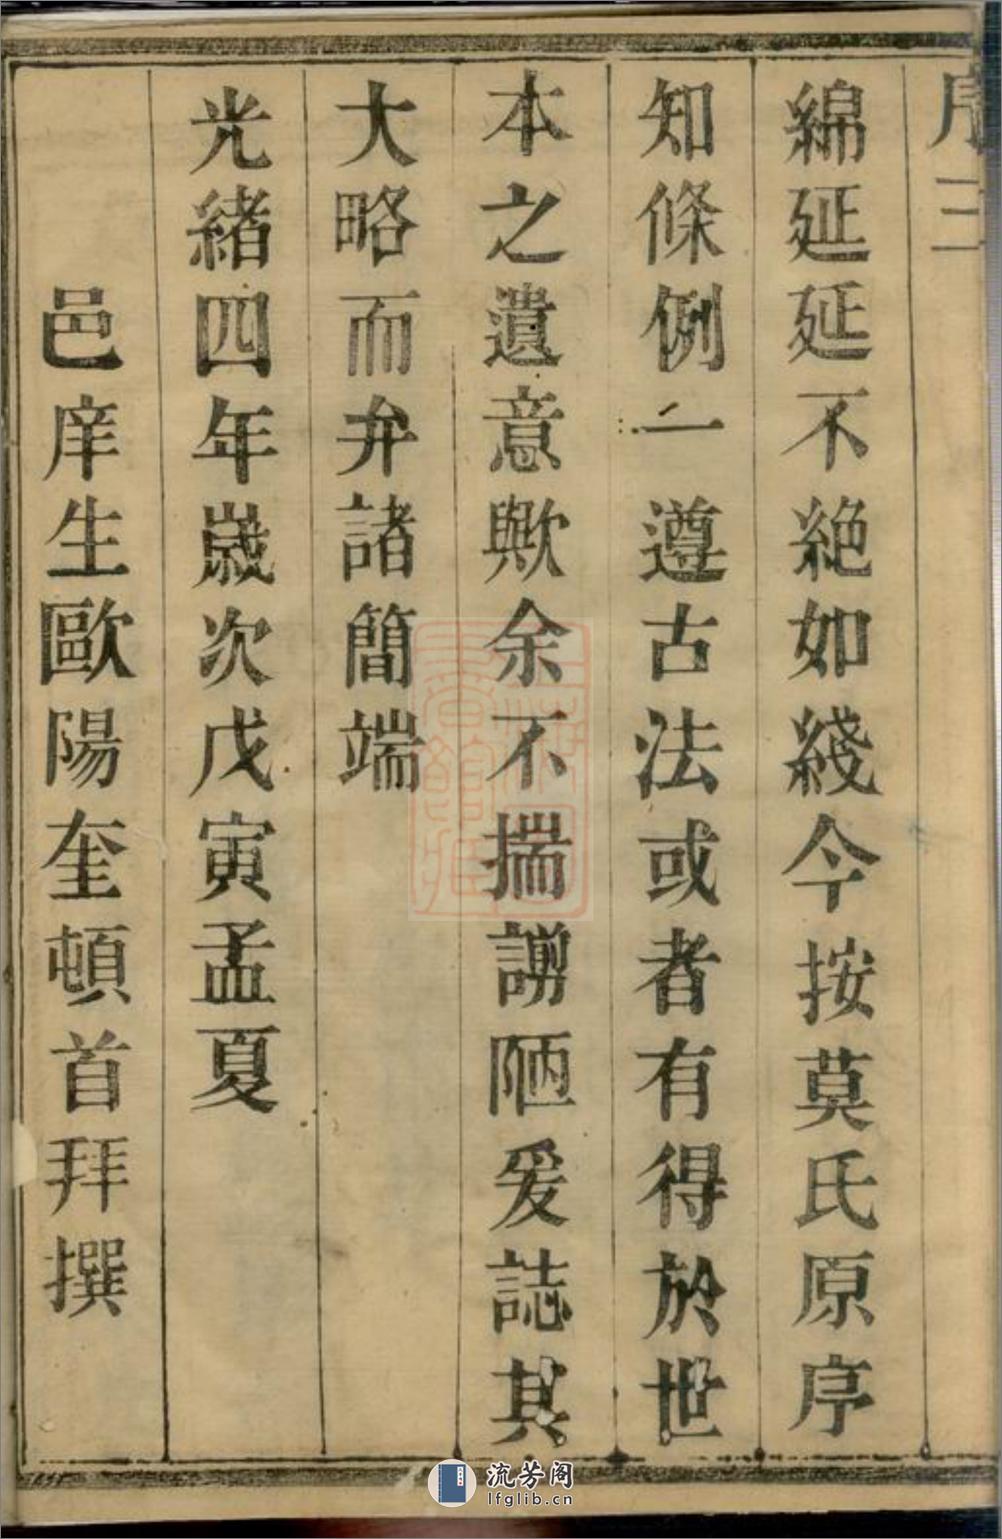 序三
綿延延不絶如綫今按莫氏原序
知條例一遵古法或者有得於世
本之遺意歟余不揣謭陋爰誌其
大略而弁諸簡端
光緒四年歲次戊寅孟夏
邑庠生歐陽奎頓首拜撰
流芳阁
lfglib.cn